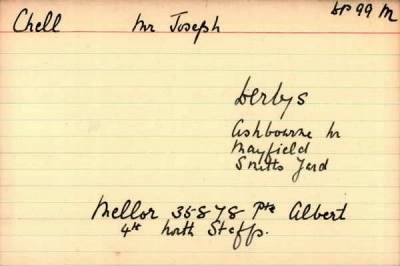 Chell Mr Joseph DP 99 M
Derbys
Ashbourne Nr
Mayfield
Smiths Yard
Mellor 35878 Pte Albert
4th North Staffs.